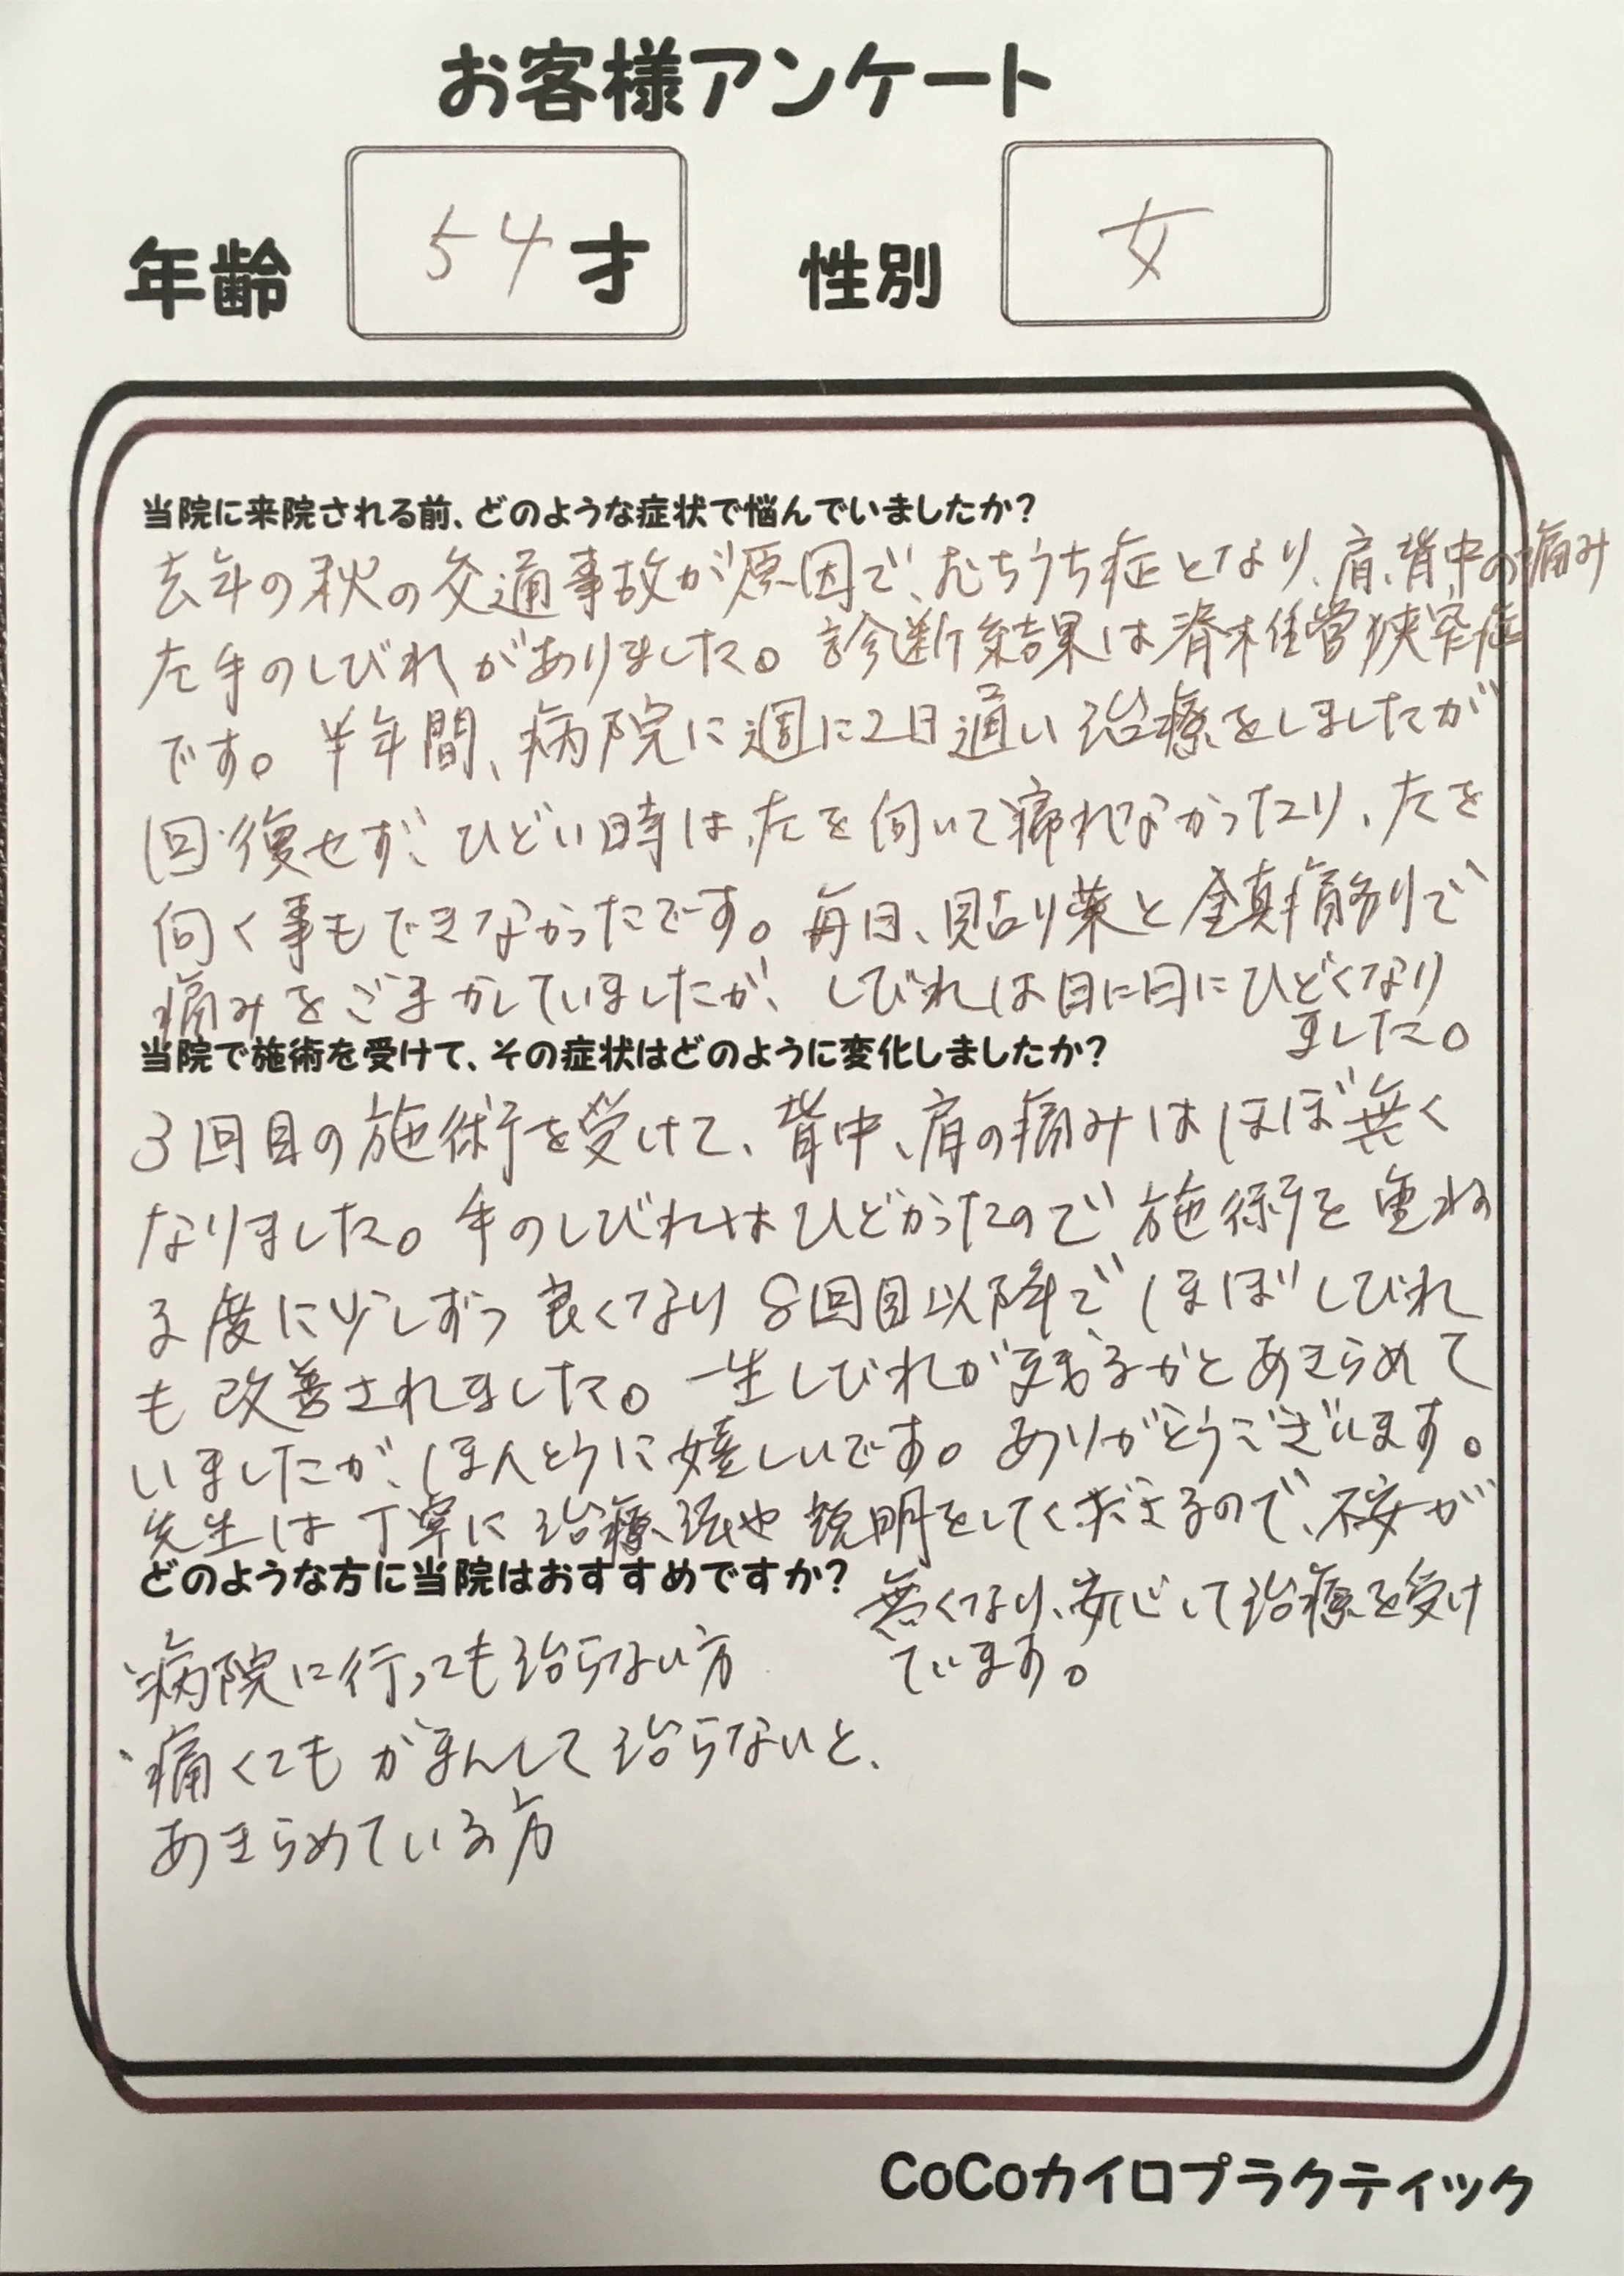 お客様アンケート
年齢 54才 性別 女
当院に来院される前、どのような症状で悩んでいましたか?
去年の秋の交通事故が原因で、むちうち症となり、肩、背中の痛み
左手のしびれがありました。診断結果は脊柱管狭窄症
です。半年間、病院に週に2日通い治療をしましたが
回復せず、ひどい時は、左を向いて寝れなかったり、左を
向く事もできなかったです。毎日、貼り薬と鎮痛剤で
痛みをごまかしていましたが、しびれは日に日にひどくなり
ました。
当院で施術を受けて、その症状はどのように変化しましたか?
3回目の施術を受けて、背中、肩の痛みはほぼ無く
なりました。手のしびれはひどかったので施術を重ね
る度に少しずつ良くなり8回目以降でほぼしびれ
も改善されました。一生しびれが残るかとあきらめて
いましたが、ほんとうに嬉しいです。ありがとうございます。
先生は丁寧に治療法や説明をしてくださるので、不安が
無くなり、安心して治療を受け
ています。
どのような方に当院はおすすめですか?
・病院に行っても治らない方
・痛くてもがまんして治らないと、
あきらめている方
CoCoカイロプラクティック